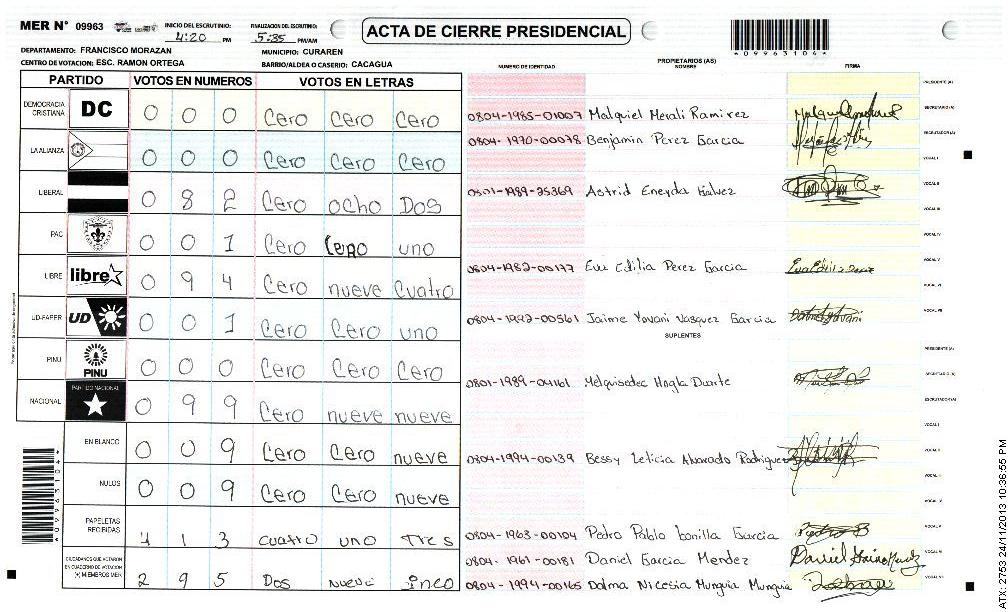 MER N° 09963 INICIO DEL ESCRUTINIO: 4:20 PM FINALIZACION DEL ESCRUTINIO: 5:35 PM/AM
ACTA DE CIERRE PRESIDENCIAL
*09963104*
DEPARTAMENTO: FRANCISCO MORAZAN MUNICIPIO: CURAREN
CENTRO DE VOTACION: ESC. RAMON ORTEGA BARRIO/ALDEA O CASERIO: CACAGUA
PARTIDO VOTOS EN NUMEROS VOTOS EN LETRAS
DEMOCRACIA CRISTIANA DC 0 0 0 Cero Cero Cero
LA ALIANZA 0 0 0 Cero Cero Cero
LIBERAL 0 8 2 Cero ocho Dos
PAC 0 0 1 Cero Cero uno
LIBRE libre 0 9 4 Cero nueve Cuatro
UD-FAPER UD 0 0 1 Cero Cero uno
PINU PINU 0 0 0 Cero Cero Cero
NACIONAL PARTIDO NACIONAL 0 9 9 Cero nueve nueve
EN BLANCO 0 0 9 Cero Cero nueve
NULOS 0 0 9 Cero Cero nueve
PAPELETAS RECIBIDAS 4 1 3 cuatro uno Tres
CIUDADANOS QUE VOTARON EN CUADERNO DE VOTACION (+) MIEMBROS MER 2 9 5 Dos nueve inco
*09963104*
PROPIETARIOS (AS)
NUMERO DE IDENTIDAD NOMBRE FIRMA
PRESIDENTE (A)
0804-1985-01007 Malquiel Merali Ramirez SECRETARIO (A)
0804-1970-00078 Benjamin Perez Garcia ESCRUTADOR (A)
VOCAL I
0501-1989-25369 Astrid Eneyda Galvez VOCAL II
VOCAL III
VOCAL IV
0804-1982-00177 Eva Edilia Perez Garcia VOCAL V
VOCAL VI
0804-1992-00561 Jaime Yovani Vasquez Garcia VOCAL VII
SUPLENTES
PRESIDENTE (A)
0801-1989-04161 Melquisedec Duarte SECRETARIO (A)
ESCRUTADOR (A)
VOCAL I
0804-1994-00139 Bessy Leticia Alvarado Rodriguez VOCAL II
0804-1963-00104 Pedro Pablo bonilla Garcia VOCAL V
0804-1961-00181 Daniel Garcia Mendez VOCAL VI
0804-1994-00165 Dalma Nicesia Munguia Munguia VOCAL VII
ATX 2753 24/11/2013 10:36:55 PM